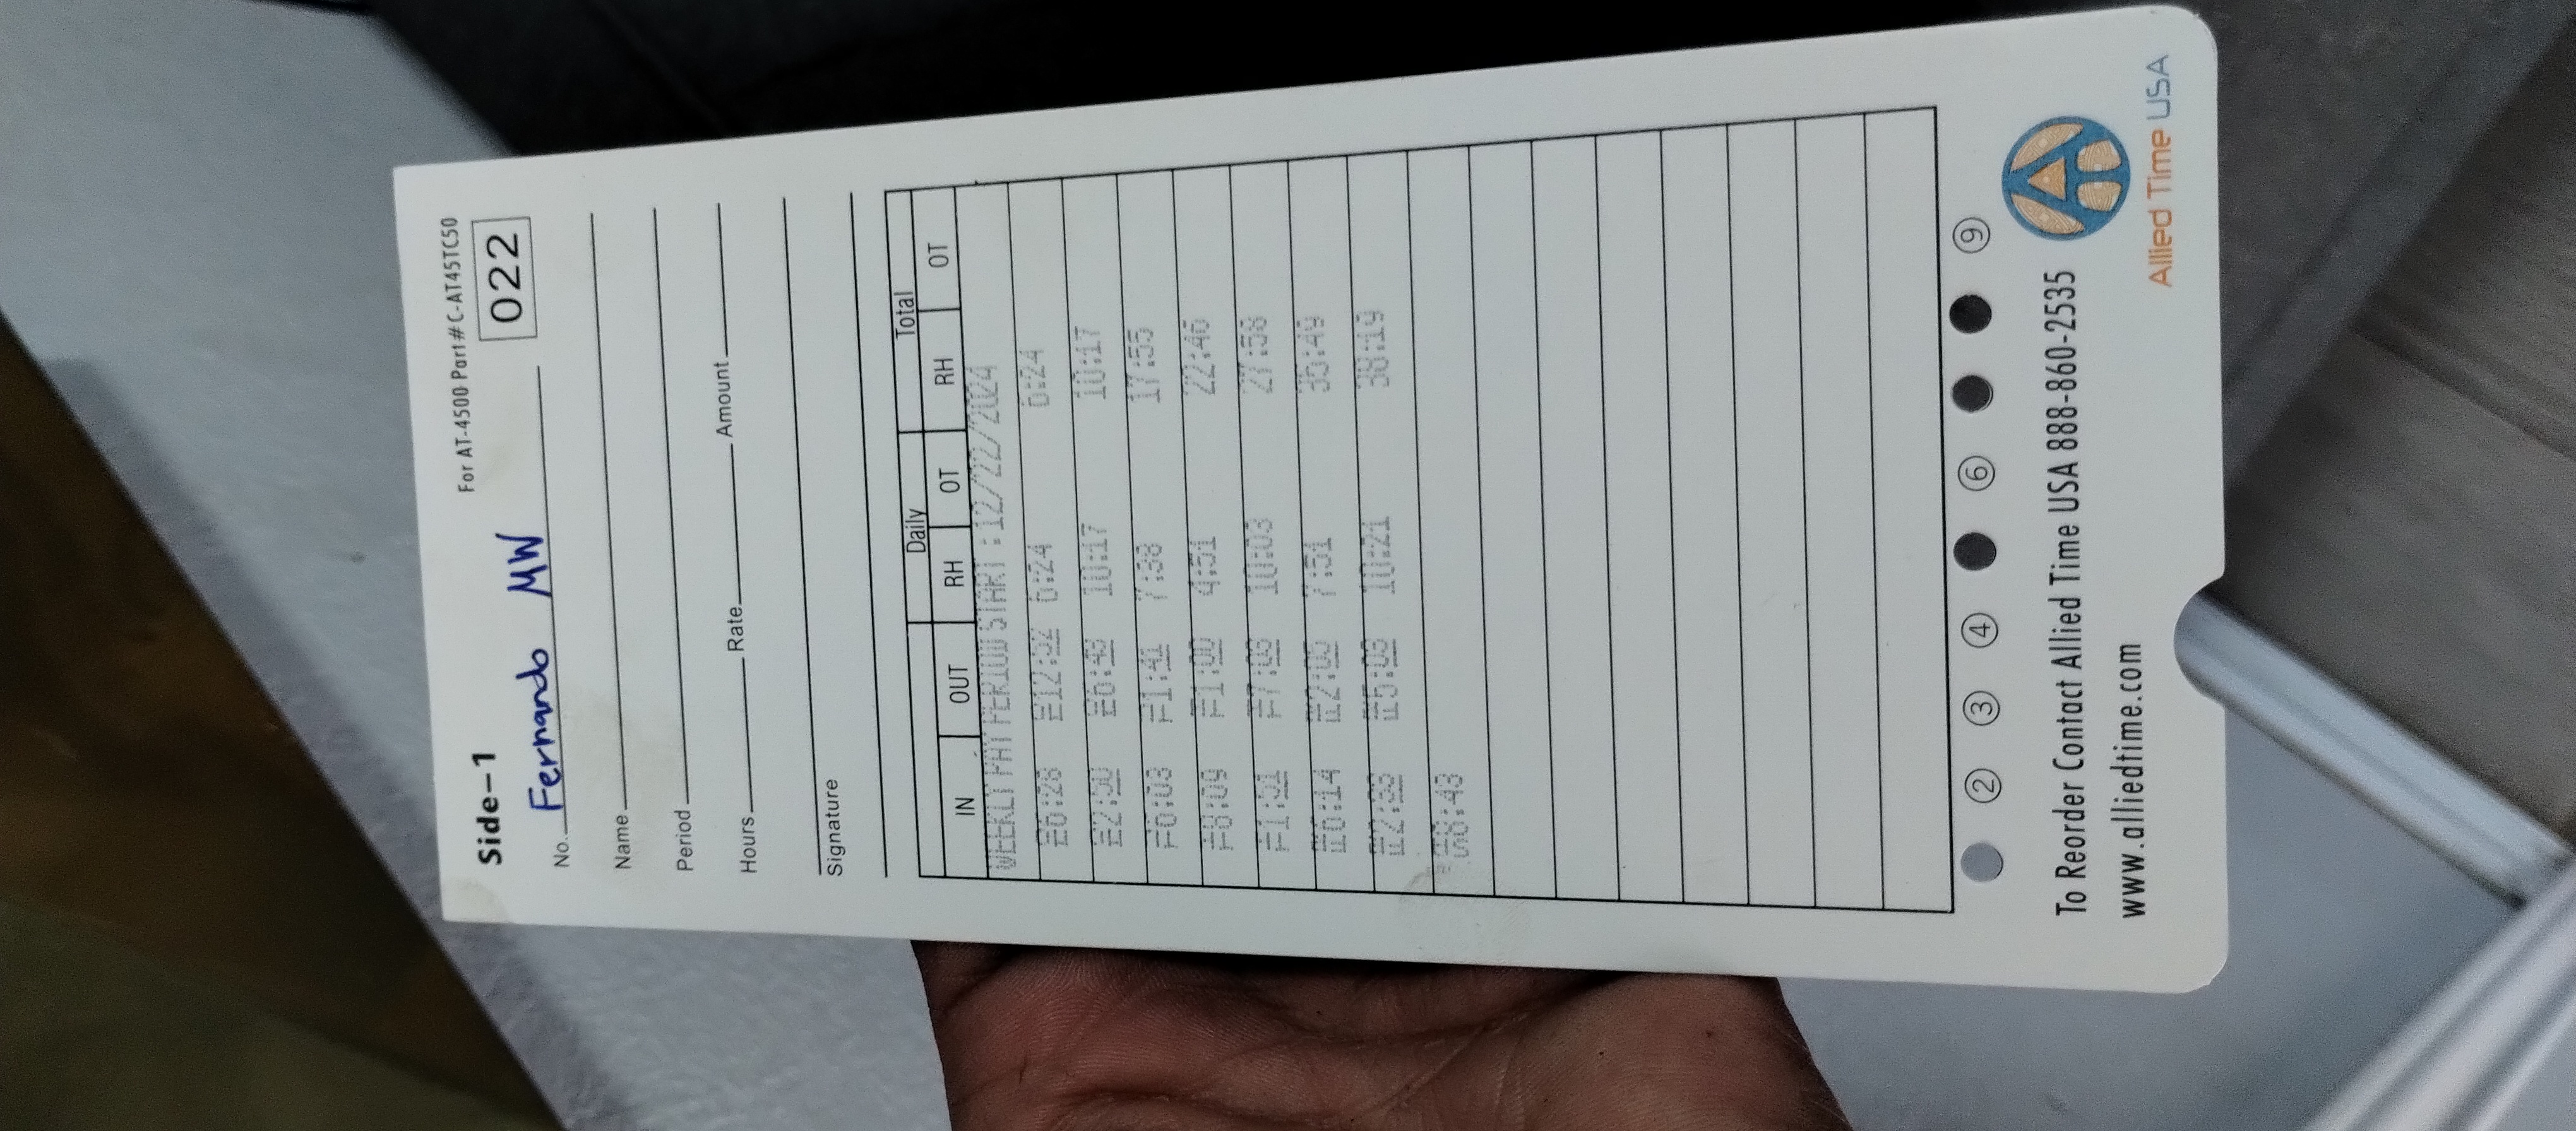 For AT-4500 Part# C-AT45TC50
Side-1
No. Fernando MW 022
Name
Period
Hours Rate Amount
Signature
Daily Total
IN OUT RH OT RH OT
WEEKLY PAY PERIOD START :12/22/2024
6:28 12:52 6:24 6:24
2:50 6:43 10:17 10:17
6:03 1:41 7:38 17:55
8:09 1:00 4:51 22:46
1:51 7:03 10:03 27:58
6:14 2:05 7:51 35:49
2:33 5:03 10:21 38:19
8:43
2 3 4 6 9
To Reorder Contact Allied Time USA 888-860-2535
www.alliedtime.com
Allied Time USA